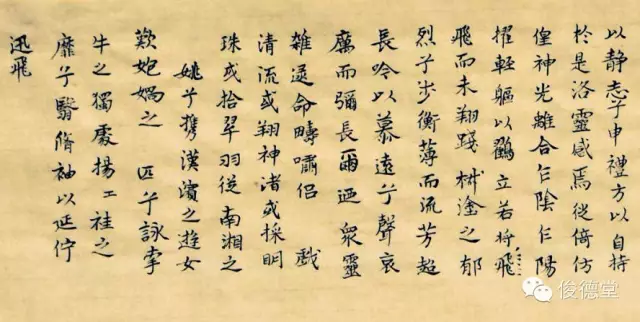 以静志兮申禮方以自持
於是洛靈感焉徙倚仿
偟神光離合乍陰乍陽
擢輕軀以鶴立若将飛
飛而未翔踐椒塗之郁
烈兮步衡薄而流芳超
長吟以慕遠兮聲哀
厲而彌長爾迺衆靈
雜遝命疇嘯侣戲
清流或翔神渚或採明
珠或拾翠羽從南湘之
姚兮攜漢濱之遊女
歎匏媧之 匹兮詠牽
牛之獨處揚工袿之
靡兮翳脩袖以延佇
迅飛
俊德堂